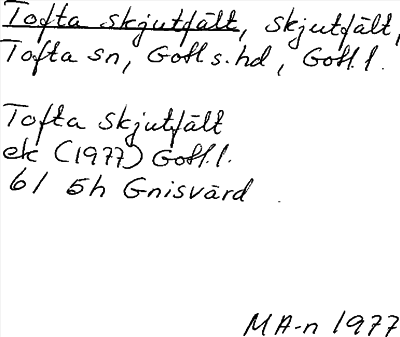 Tofta skjutfält, skjutfält,
Tofta sn, Gotl s. hd, Gotl. l.
Tofta skjutfält
ek (1977) Gotl. l.
6I 5h Gnisvärd
MA-n 1977